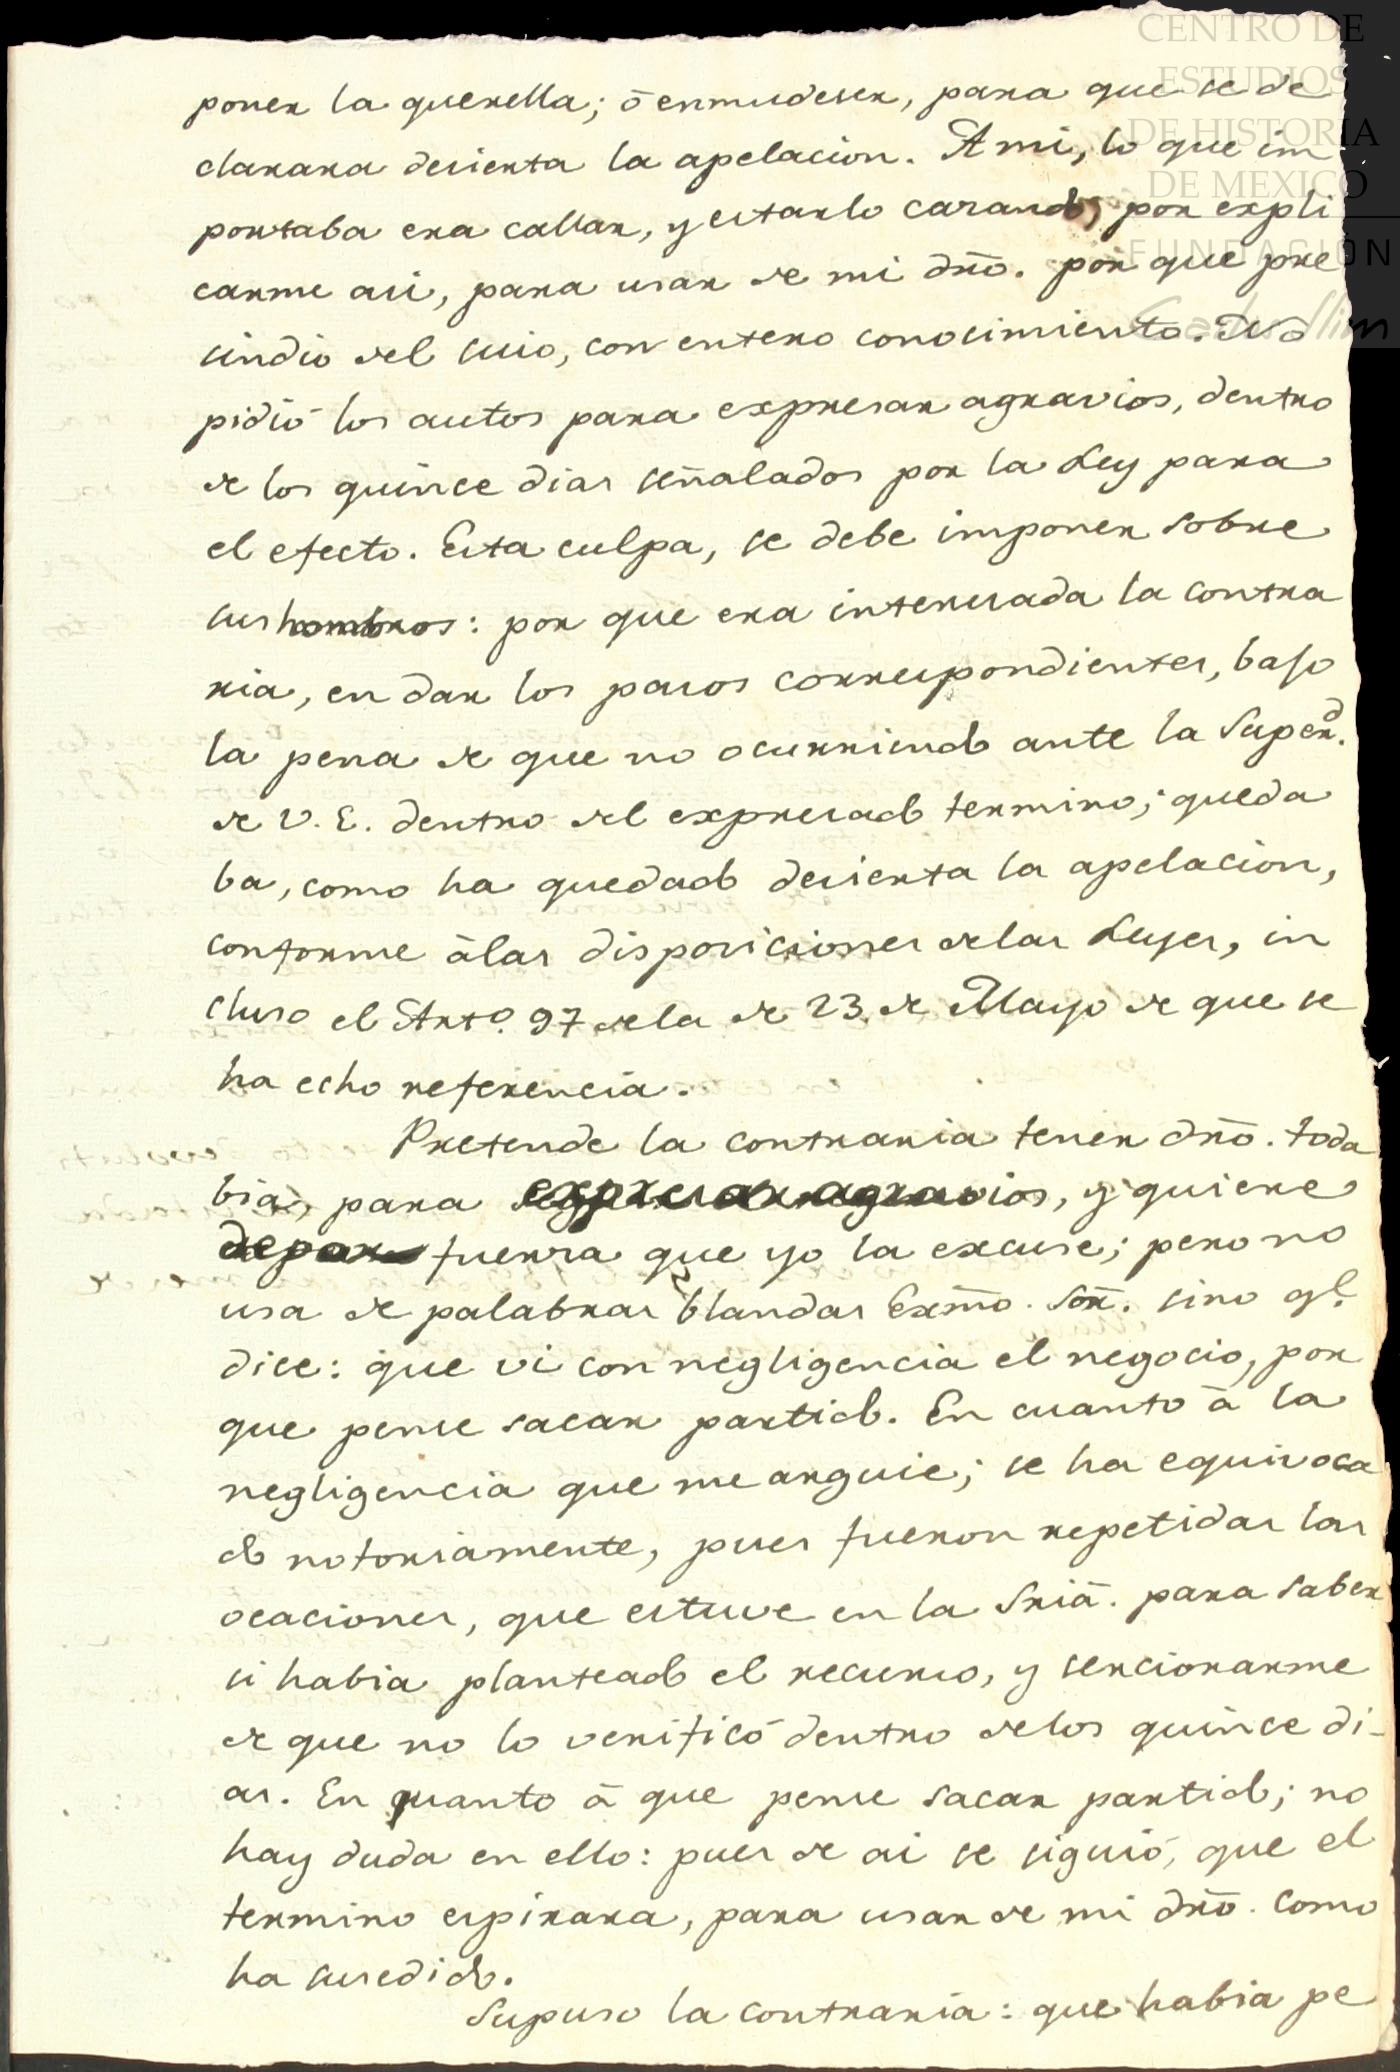 CENTRO DE
ESTUDIOS
DE HISTORIA
DE MEXICO
FUNDACIÓN
Carlos Slim
poner la querella; ó enmudeser, para que se de
clarara desierta la apelacion. A mi, lo que im
portaba era callar, y estarlo casando, por expli
carme asi, para usar de mi dr̃o. por que pre
sindio del suio, con entero conosimiento. No
pidió los autos para expresar agravios, dentro
de los quince dias señalados por la Ley para
el efecto. Esta culpa, se debe imponer sobre
sus hombros: por que era interesada la contra
ria, en dar los pasos correspondientes, bajo
la pena de que no ocurriendo ante la Superd.
de V. E. dentro del expresado termino; queda
ba, como ha quedado desierta la apelacion,
conforme á las disposiciones de las Leyes, in
cluso el Arto. 97 de la de 23 de Mayo de que se
ha echo referencia.
Pretende la contraria tener dr̃o. toda
bia, para expresar agravios, y quiere
de por fuerza que yo la excuse; pero no
usa de palabras blandas Exm̃o. Sõr. sino ql.
dice: que vi con negligencia el negocio, por
que pense sacar partido. En cuanto á la
negligencia que me arguie; se ha equivoca
do notoriamente, pues fueron repetidas las
ocaciones, que estuve en la Sriã. para saber
si habia planteado el recurso, y sercionarme
de que no lo verificó dentro de los quince di-
as. En quanto á que pense sacar partido; no
hay duda en ello: pues de ai se siguió, que el
termino espirara, para usar de mi dr̃o. como
ha susedido.
Supuso la contraria: que habia pe